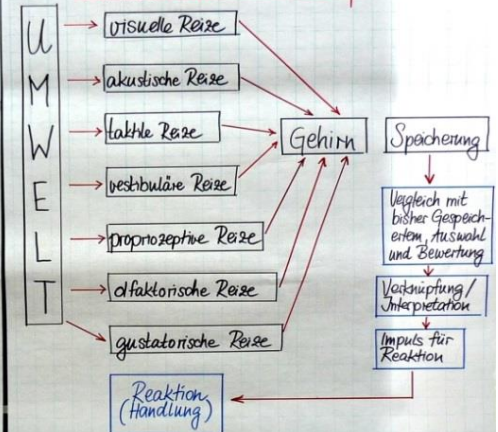 UMWELT
visuelle Reize
akustische Reize
taktile Reize
vestibuläre Reize
propriozeptive Reize
olfaktorische Reize
gustatorische Reize
Gehirn
Speicherung
Vergleich mit
bisher Gespeich-
ertem, Auswahl
und Bewertung
Verknüpfung/
Interpretation
Impuls für
Reaktion
Reaktion
(Handlung)